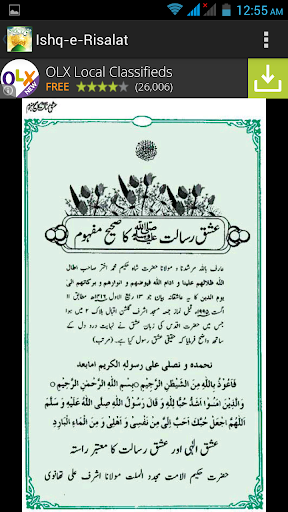 12:55 AM
Ishq-e-Risalat
OLX
NEW
OLX Local Classifieds
FREE (26,006)
عشق رسالت ﷺ کا صحیح مفہوم
عارف باللہ مرشدنا و مولانا حضرت شاہ حکیم محمد اختر صاحب اطال
اللہ ظلالھم علینا و ادام اللہ فیوضھم و انوارھم و برکاتھم الی
یوم الدین کا یہ عاشقانہ بیان جو ۱۳ ربیع الاول ۱۴۱۶ھ مطابق ۱۱
اگست ۱۹۹۵ء قبل نماز جمعہ مسجد اشرف گلشن اقبال بلاک ۲ میں ہوا
جس میں حضرت اقدس کی زبان عشق نے نہایت درد دل کے
ساتھ واضح فرمایا کہ حقیقی عشق رسول کیا ہے۔ (مرتب)
نحمده و نصلى على رسوله الكريم امابعد
فَاَعُوْذُ بِاللّٰهِ مِنَ الشَّيْطٰنِ الرَّجِيْمِ بِسْمِ اللّٰهِ الرَّحْمٰنِ الرَّحِيْمِ
وَالَّذِيْنَ اٰمَنُوْا اَشَدُّ حُبًّا لِّلّٰهِ وَ قَالَ رَسُوْلُ اللّٰهِ صَلَّى اللّٰهُ عَلَيْهِ وَ سَلَّمَ
اَللّٰهُمَّ اجْعَلْ حُبَّكَ اَحَبَّ اِلَيَّ مِنْ نَفْسِيْ وَ اَهْلِيْ وَ مِنَ الْمَاءِ الْبَارِدِ
عشق الٰہی اور عشق رسالت کا معتبر راستہ
حضرت حکیم الامت مجدد الملت مولانا اشرف علی تھانوی